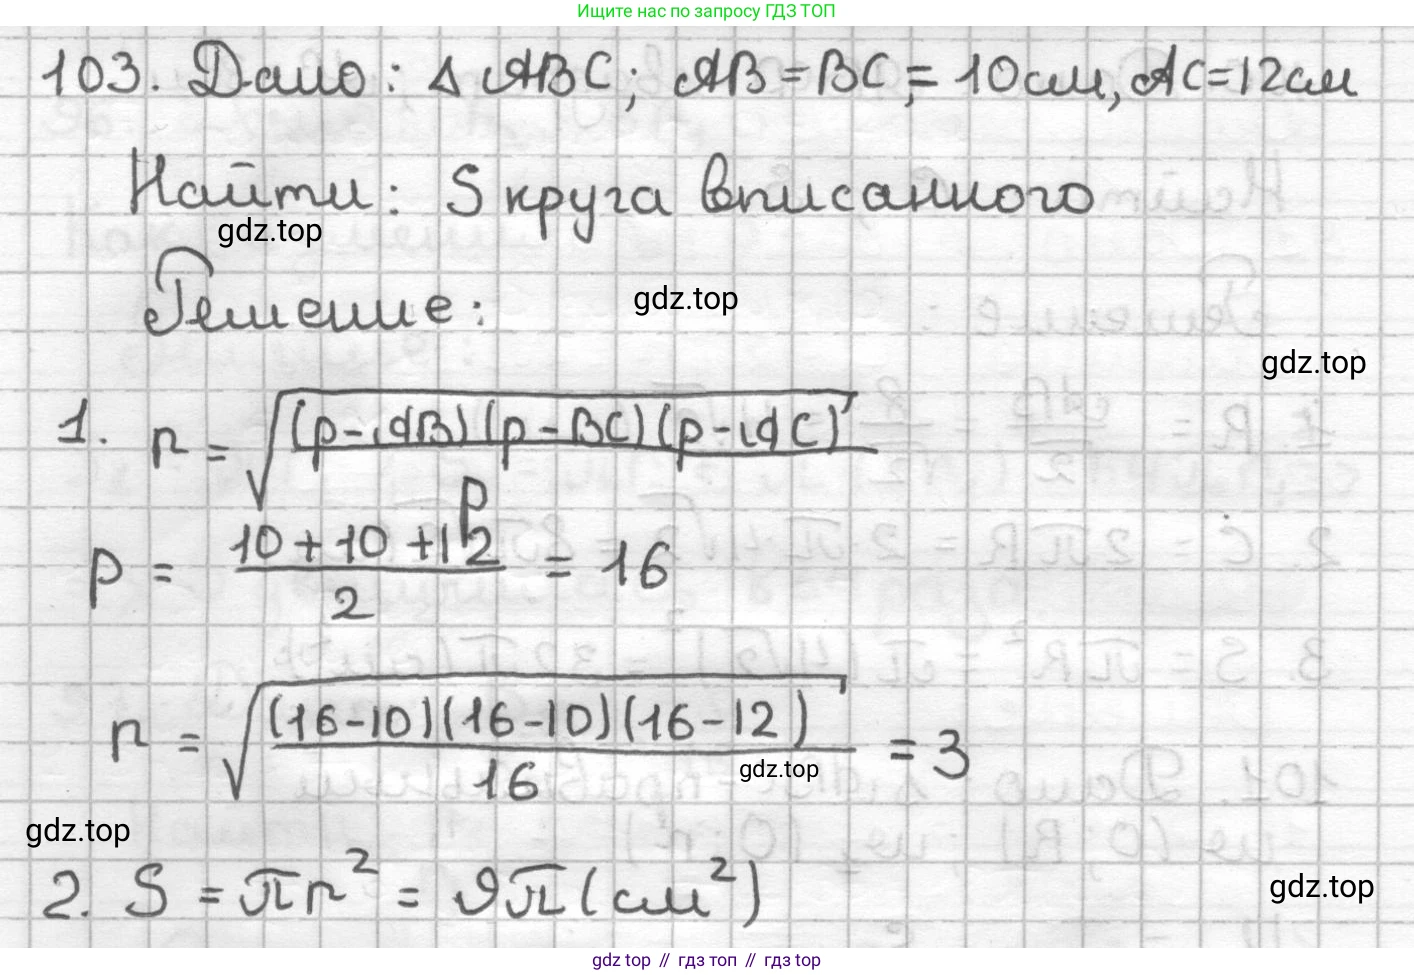 Ищите нас по запросу ГДЗ ТОП
103. Дано: △ABC; AB = BC = 10см, AC = 12см
Найти: S круга вписанного
gdz.top
Решение:
gdz.top
gdz.top
1. r = √((p-AB)(p-BC)(p-AC)/p)
p = (10+10+12)/2 = 16
r = √((16-10)(16-10)(16-12)/16) = 3
gdz.top
gdz.top
2. S = πr² = 9π(см²)
gdz.top
gdz.top // гдз топ // гдз top